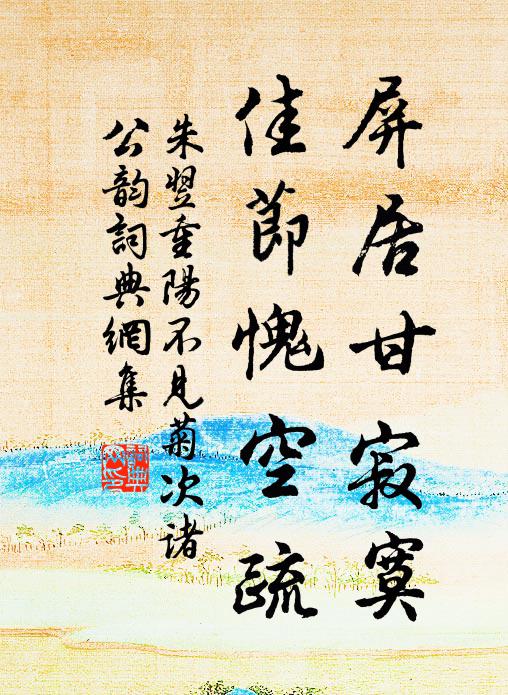 屏居甘寂寞
佳節愧空疏
朱翌重陽不見菊次諸
公韵詞典網集